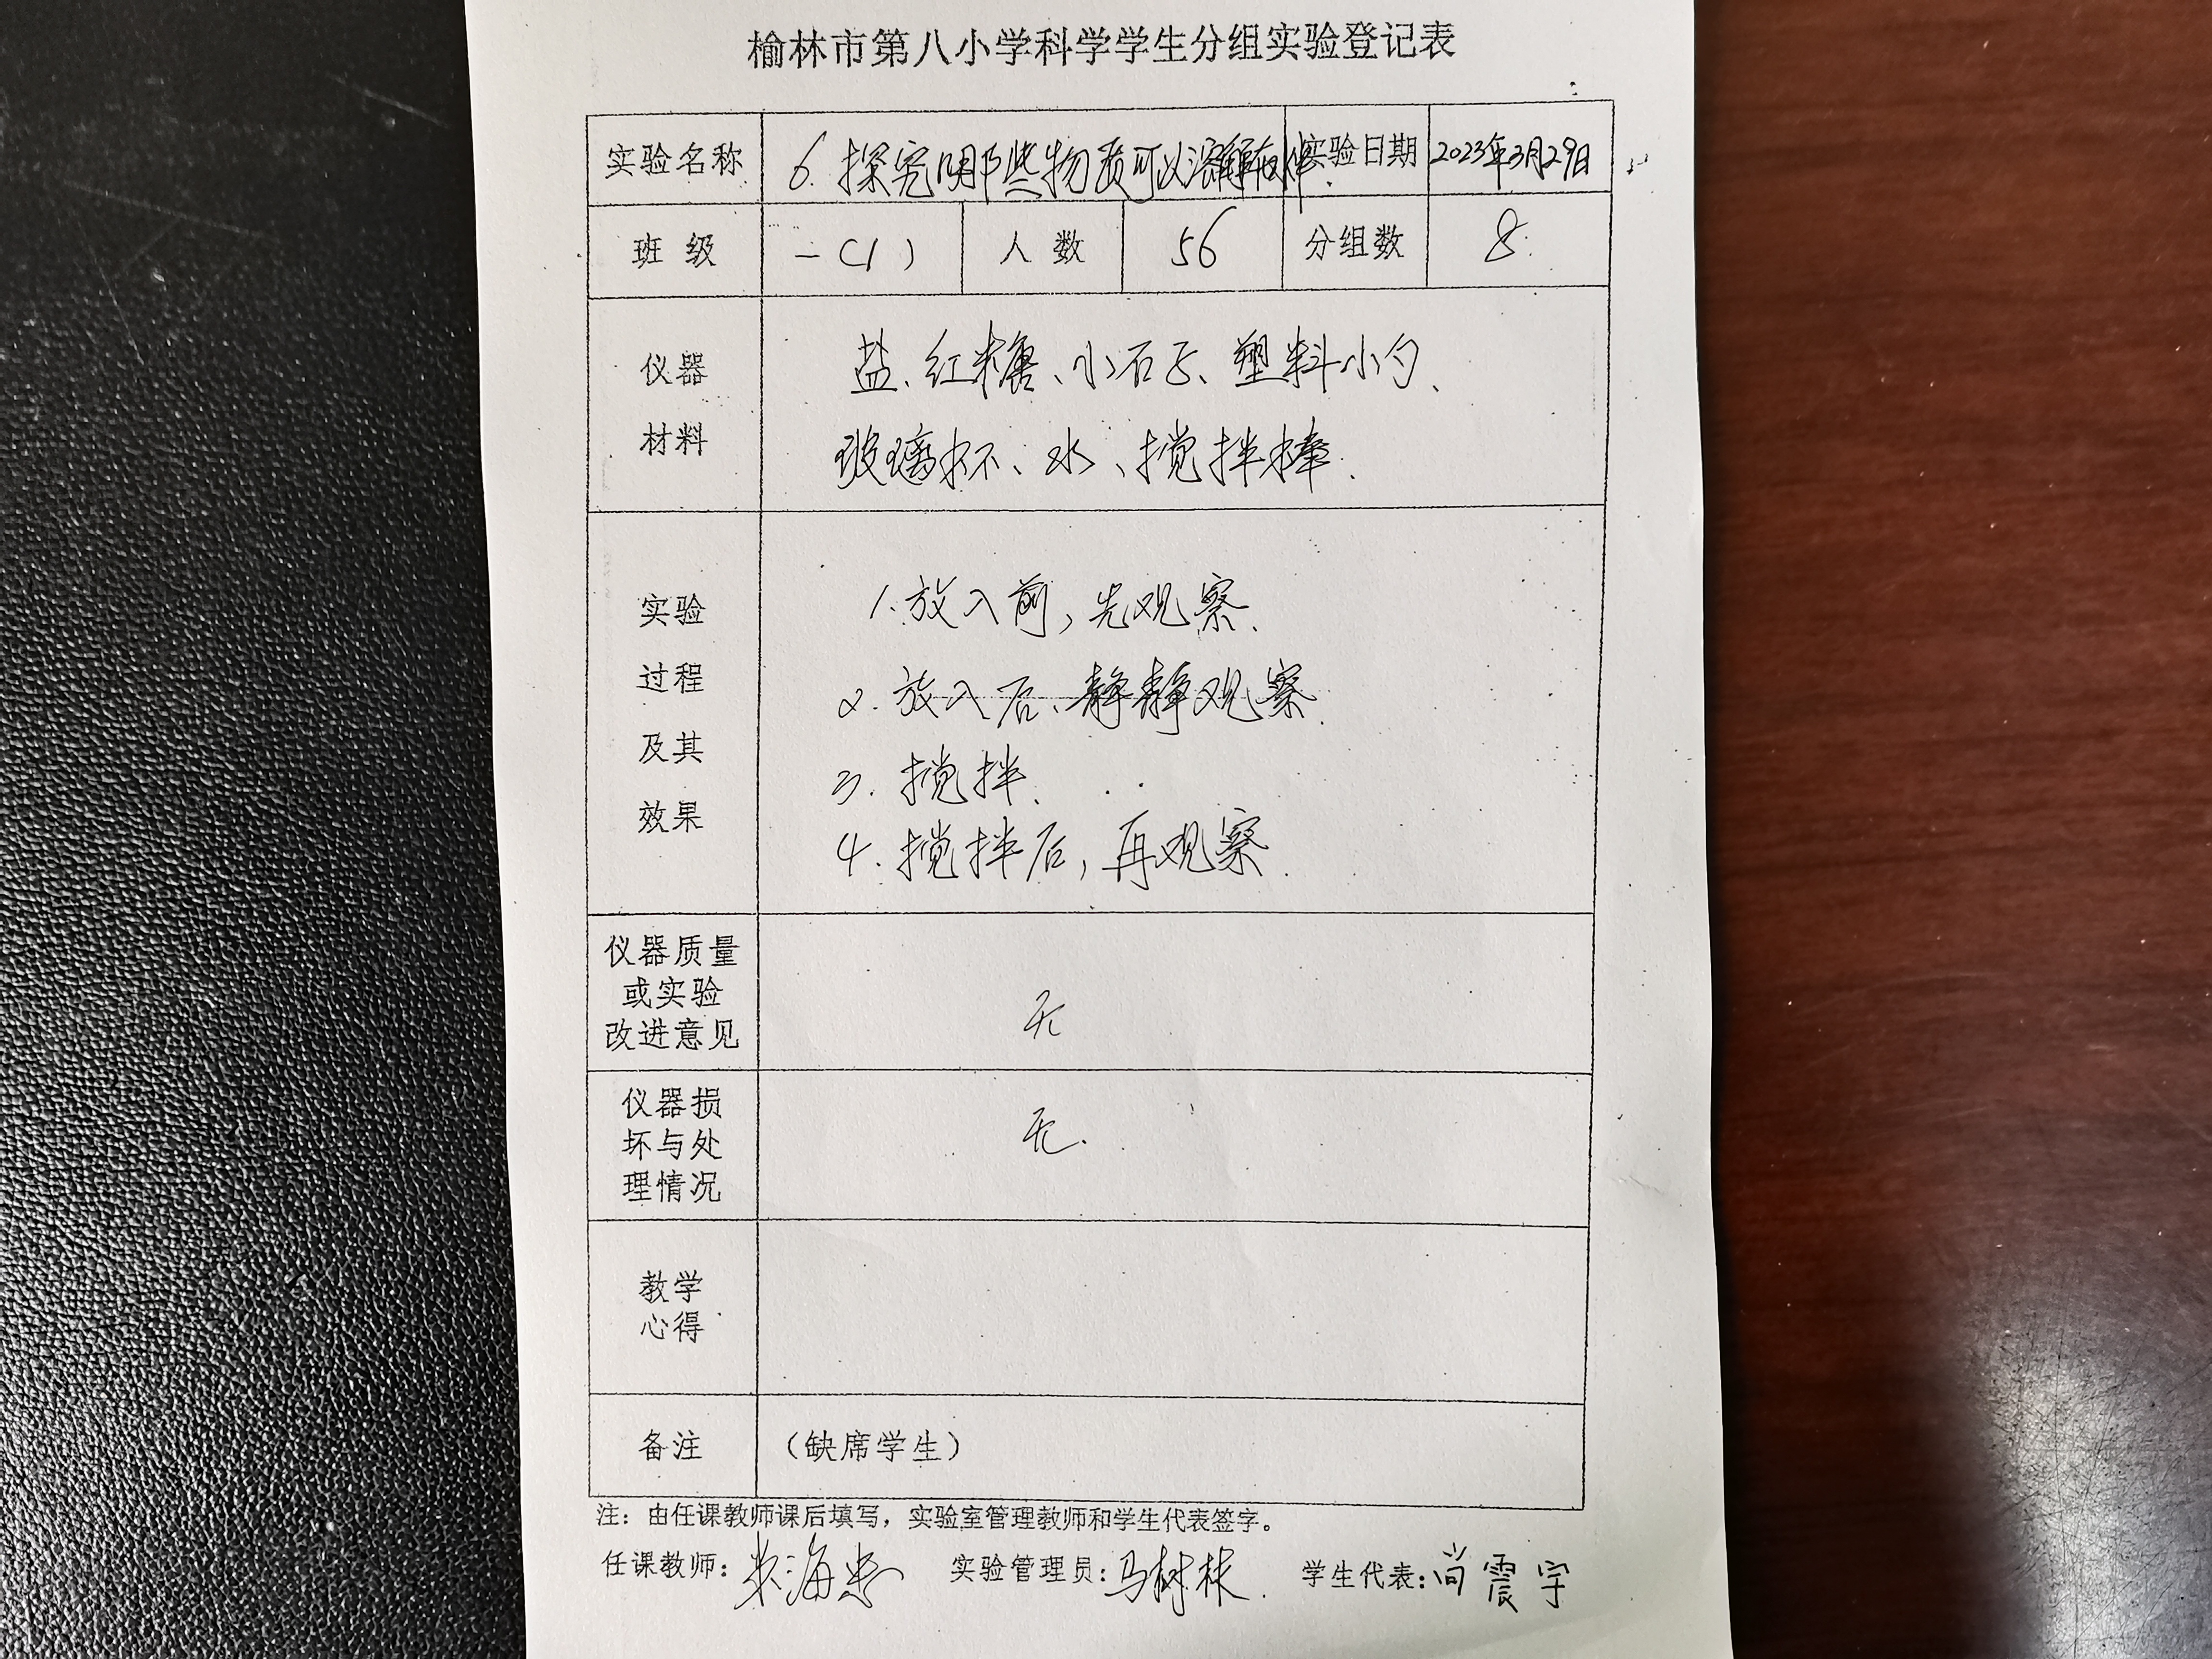 榆林市第八小学科学学生分组实验登记表
实验名称 6. 探究哪些物质可以溶解在水 实验日期 2023年3月29日
班 级 一(1) 人 数 56 分组数 8.
仪器 盐、红糖、小石子、塑料小勺、
材料 玻璃杯、水、搅拌棒.
实验 1. 放入前,先观察.
过程 2. 放入后、静静观察.
及其 3. 搅拌.
效果 4. 搅拌后,再观察.
仪器质量
或实验 无
改进意见
仪器损
坏与处 无.
理情况
教学
心得
备注 (缺席学生)
注:由任课教师课后填写,实验室管理教师和学生代表签字。
任课教师: 海 实验管理员:马树林. 学生代表:尚震宇